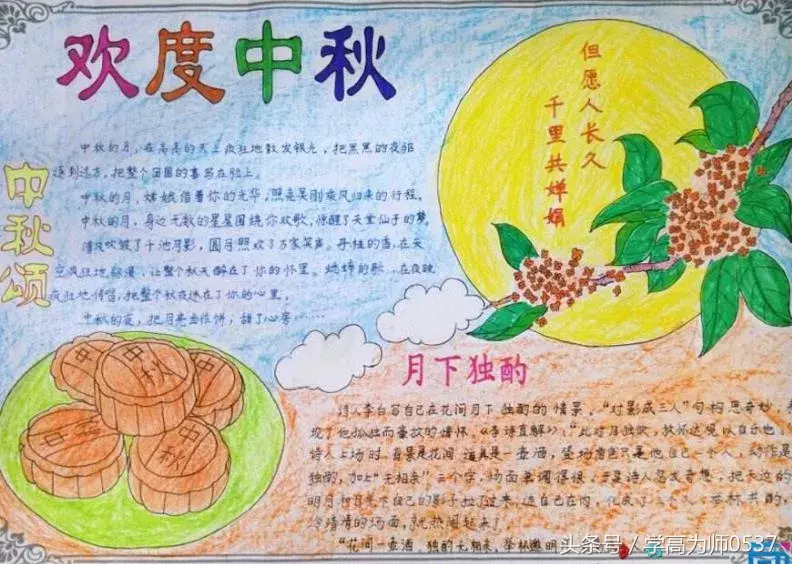 欢度中秋
但愿人长久
千里共婵娟
中秋颂
中秋的月，在高高的天上疯狂地散发银光，把黑黑的夜驱
逐到远方，把整个团圆的喜写在脸上。
中秋的月，嫦娥借着你的光华，照亮吴刚乘风归来的行程。
中秋的月，身边无数的星星围绕你欢歌，惊醒了天堂仙子的梦。
清风吹皱了十池月影，圆月照欢了万家笑声。丹桂的香，在天
空疯狂地弥漫，让整个秋天醉在了你的怀里。蟋蟀的歌，在夜晚
疯狂地传唱，把整个秋夜迷在了你的心里。
中秋的夜，把月亮当作饼，甜了心房……
中秋
中
秋
中
中秋
月下独酌
诗人李白写自己在花间月下独酌的情景。“对影成三人”句构思奇妙，表
现了他孤独而豪放的情怀。《李诗直解》：“此对月独饮，放怀达观以自乐也。
诗人上场时，背景是花间，道具是一壶酒，登场角色只是他自己一个人，动作是
独酌，加上“无相亲”三个字，场面单调得很。于是诗人忽发奇想，把天边的
明月和月光下自己的影子拉了过来，连自己在内，化成了三个人，举杯共酌，
冷清清的场面，就热闹起来了
“花间一壶酒，独酌无相亲。举杯邀明
头条号／学高为师0537